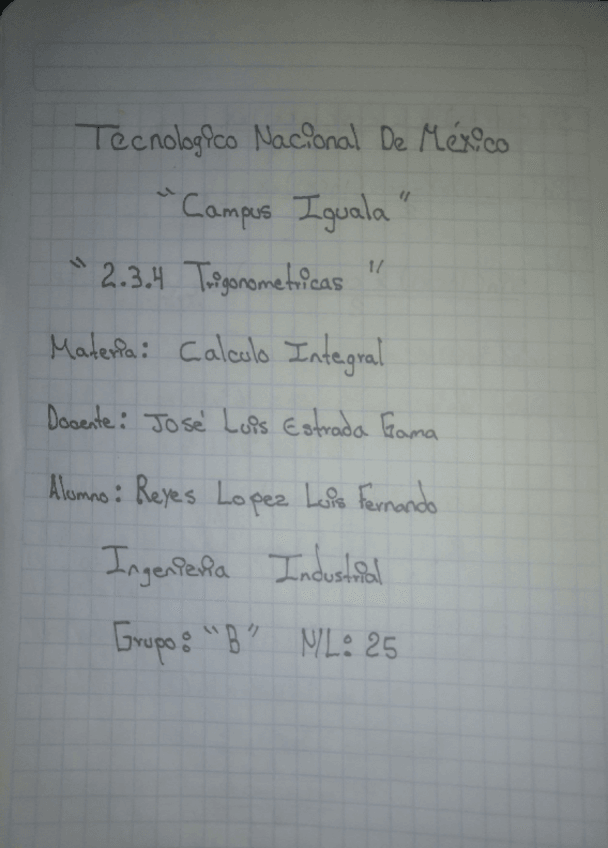 Tecnologico Nacional De México
"Campus Iguala"
"2.3.4 Trigonometricas"
Materia: Calculo Integral
Docente: José Luis Estrada Gama
Alumno: Reyes Lopez Luis Fernando
Ingenieria Industrial
Grupo: "B" N/L: 25